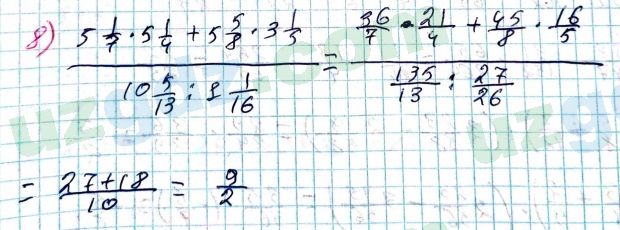 8) (5 1/7 · 5 1/4 + 5 5/8 · 3 1/5) / (10 5/13 : 1 1/16) = (36/7 · 21/4 + 45/8 · 16/5) / (135/13 : 27/26)
= (27+18)/10 = 9/2